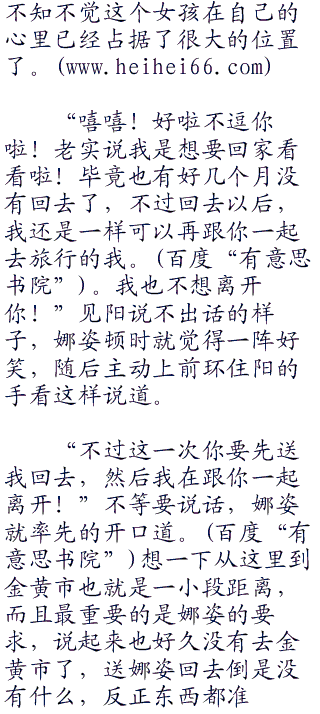 不知不觉这个女孩在自己的
心里已经占据了很大的位置
了。(www.heihei66.com)
“嘻嘻！好啦不逗你
啦！老实说我是想要回家看
看啦！毕竟也有好几个月没
有回去了，不过回去以后，
我还是一样可以再跟你一起
去旅行的我。(百度“有意思
书院”)。我也不想离开
你！”见阳说不出话的样
子，娜姿顿时就觉得一阵好
笑，随后主动上前环住阳的
手看这样说道。
“不过这一次你要先送
我回去，然后我在跟你一起
离开！”不等要说话，娜姿
就率先的开口道。(百度“有
意思书院”)想一下从这里到
金黄市也就是一小段距离，
而且最重要的是娜姿的要
求，说起来也好久没有去金
黄市了，送娜姿回去倒是没
有什么，反正东西都准